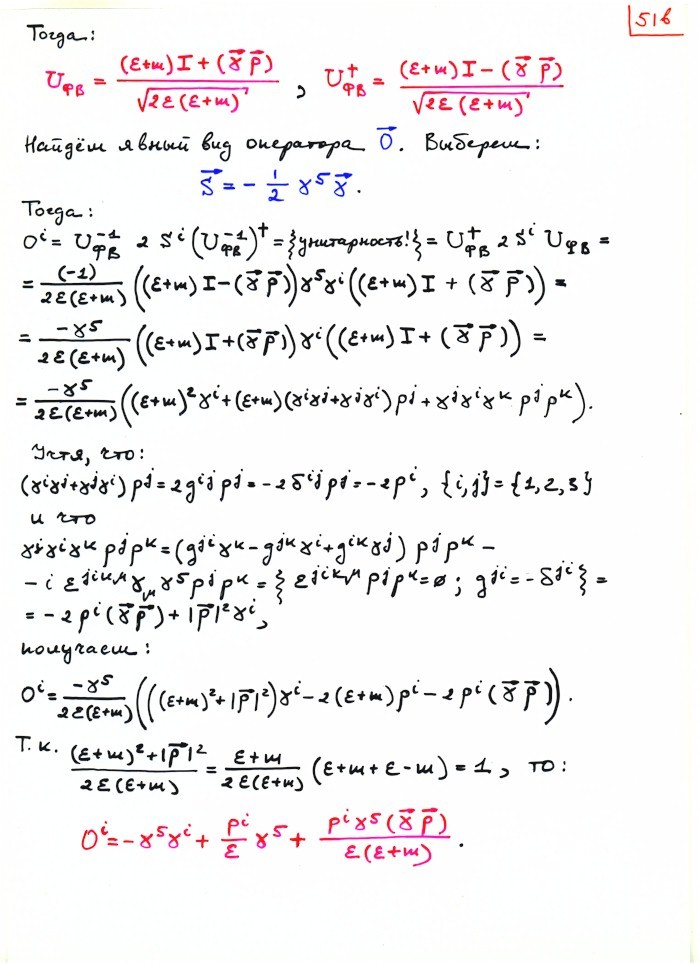 51b
Тогда:
U_ФВ = ((ε+m) I + (γ⃗ p⃗)) / √(2ε(ε+m)) , U†_ФВ = ((ε+m) I − (γ⃗ p⃗)) / √(2ε(ε+m))
Найдём явный вид оператора O⃗. Выберем:
S⃗ = − 1/2 γ⁵ γ⃗.
Тогда:
Oⁱ = U⁻¹_ФВ 2 Sⁱ (U⁻¹_ФВ)† = {унитарность!} = U†_ФВ 2 Sⁱ U_ФВ =
= (−1)/(2ε(ε+m)) ((ε+m) I − (γ⃗ p⃗)) γ⁵γⁱ ((ε+m) I + (γ⃗ p⃗)) =
= −γ⁵/(2ε(ε+m)) ((ε+m) I + (γ⃗ p⃗)) γⁱ ((ε+m) I + (γ⃗ p⃗)) =
= −γ⁵/(2ε(ε+m)) ((ε+m)² γⁱ + (ε+m)(γⁱγʲ+γʲγⁱ) pʲ + γʲγⁱγᵏ pʲpᵏ).
Учтя, что:
(γⁱγʲ+γʲγⁱ) pʲ = 2gⁱʲ pʲ = −2δⁱʲ pʲ = −2pⁱ, {i,j} = {1,2,3}
и что
γʲγⁱγᵏ pʲpᵏ = (gʲⁱγᵏ − gʲᵏγⁱ + gⁱᵏγʲ) pʲpᵏ −
− i εʲⁱᵏᵘ γ_μ γ⁵ pʲpᵏ = { εʲⁱᵏᵘ pʲpᵏ = ø ; gʲⁱ = −δʲⁱ } =
= −2 pⁱ (γ⃗ p⃗) + |p⃗|² γⁱ,
получаем:
Oⁱ = −γ⁵/(2ε(ε+m)) (((ε+m)² + |p⃗|²) γⁱ − 2(ε+m) pⁱ − 2pⁱ (γ⃗ p⃗)).
Т.к. ((ε+m)² + |p⃗|²)/(2ε(ε+m)) = (ε+m)/(2ε(ε+m)) (ε+m+ε−m) = 1, то:
Oⁱ = −γ⁵γⁱ + pⁱ/ε γ⁵ + pⁱγ⁵(γ⃗ p⃗)/(ε(ε+m)).